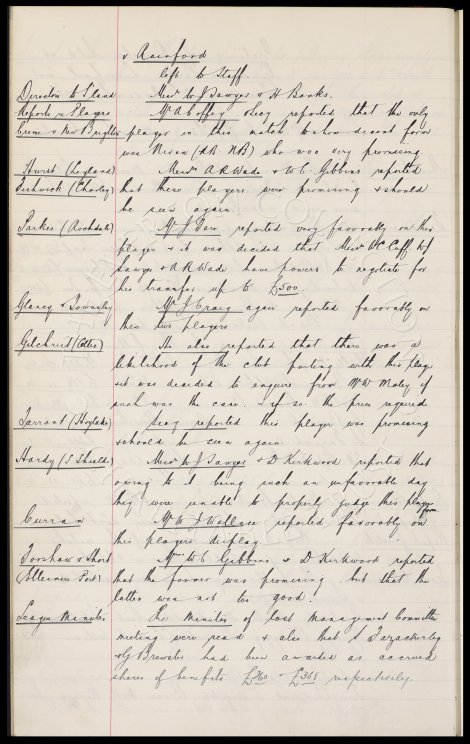 & Rainford
left to Staff.
Directors to Stand
Messrs W J Sawyer & H Banks.
Reports re Players
Mr A Coffey & Secy reported that the only
Crewe v New Brighton
player in this match to show decent form
was Nevan (RB NB) who was very promising
Hurst (Leyland)
Messrs A R Wade & W C Gibbins reported
Fishwick (Chorley)
that these players were promising & should
be seen again.
Parkes (Rochdale)
Mr J Fare reported very favorably on this
player & it was decided that Messrs W C Cuff W J
Sawyer & A R Wade have powers to negotiate for
his transfer up to £500
Glancy & Townsley
Mr J Craig again reported favorably on
these two players.
Gilchrist (Celtic)
He also reported that there was a
likelihood of the club parting with this player
& it was decided to enquire from Mr W Maley if
such was the case & if so the price required
Tarrant (Hoylake)
Secy reported this player was promising
& should be seen again.
Hardy (S Shields)
Messrs W J Sawyer & D Kirkwood reported that
owing to it being such an unfavorable day
they were unable to properly judge this players
form
Curran
Mr A J Wallace reported favorably on
this players display
Forshaw & Short
Messrs W C Gibbins & D Kirkwood reported
(Ellesmere Port)
that the former was promising but that the
latter was not too good.
League Minutes
The minutes of last Management Committee
meeting were read & also that S Fazackerley
& G Brewster had been awarded as accrued
shares of benefits £360 & £368 respectively.